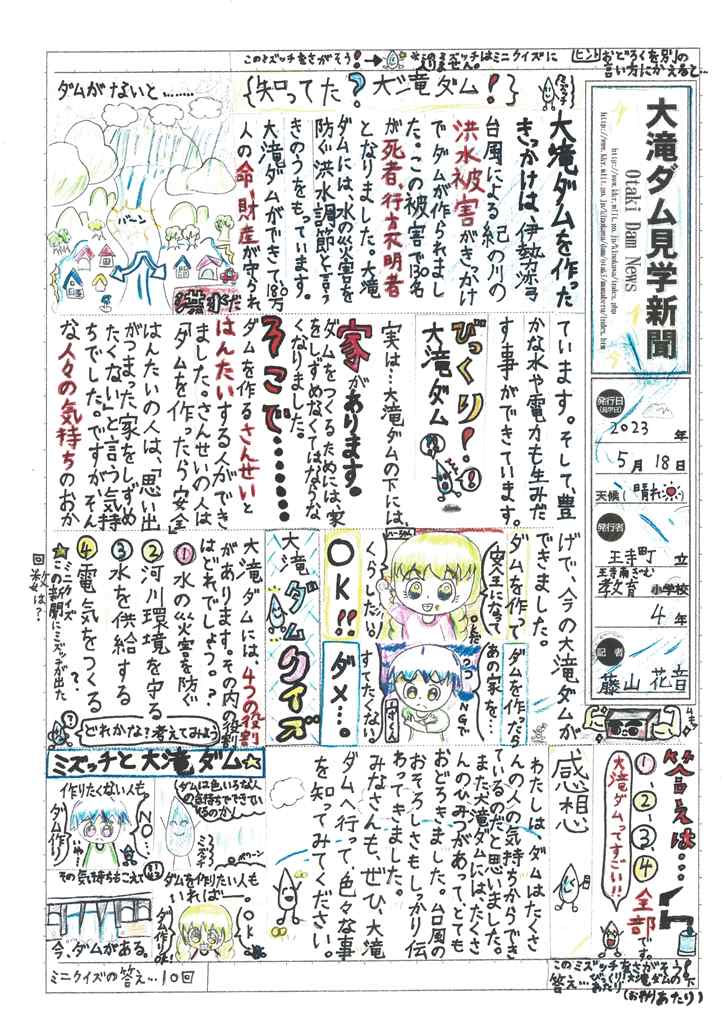 このミズッチをさがそう!→
※このミズッチはミニクイズに
入りません。
ヒント
おどろくを別の
言い方にかえると…
大滝ダム見学新聞
Otaki Dam News
発行日
(見学日)
2023年
5月18日
天候(晴れ)
発行者
王寺町立
王寺南ぎむ
教育小学校
4年
記者
藤山 花音
{知ってた?大滝ダム!}
ミズッチ
大滝ダムを作った
きっかけは、伊勢湾
台風による紀の川の
洪水被害がきっかけ
でダムが作られまし
た。この被害で130名
が死者、行方不明者
となりました。大滝
ダムには、水の災害を
防ぐ洪水調節と言う
きのうをもっています。
大滝ダムができて18万
人の命、財産が守られ
ダムがないと………
バーン
ています。そして、豊
かな水や電力も生みだ
す事ができています。
びっくり!
大滝ダム
実は…大滝ダムの下には、
家があります。
ダムをつくるためには、家
をしずめなくてはならな
くなりました。
そこで……
ダムを作るさんせいと
はんたいする人ができ
ました。さんせいの人は
「ダムを作ったら安全」
はんたいの人は、「思い出
がつまった家をしずめ
たくない」と言う気持
ちでした。ですがそん
な人々の気持ちのおか
げで、今の大滝ダムが
できました。
ダムを作って
安全になって
くらしたい。
OK!!
ダムを作ったら
あの家を…
すてたくない。
ダメ…。
NGで
大滝ダムクイズ
大滝ダムには、4つの役割
があります。その内の役割
はどれでしょう。?
①水の災害を防ぐ
②河川環境を守る
③水を供給する
④電気をつくる
?
どれかな?考えてみよう
☆ミニクイズ
この新聞にミズッチが出た
回数は?
答えは…
①、②、③、④
全部です。
大滝ダムってすごい!!
感想
わたしは、ダムはたくさ
んの人の気持ちからでき
ているのだと思いました。
また大滝ダムには、たくさ
んのひみつがあって、とても
おどろきました。台風の
おそろしさもしっかり伝
わってきました。
みなさんも、ぜひ、大滝
ダムへ行って色々な事
を知ってみてください。
ミズッチと大滝ダム☆
ダムは色々な人
の気持ちでできてい
るのか
ミズッチ
作りたくない人も
NO…
ダム作り
ダムを作りたい人も
いれば―
OK
ダム作り
その気持ちをこえて
今、ダムがある。
ミニクイズの答え…10回
このミズッチをさがそう!
答え…びっくり!大滝ダムの下